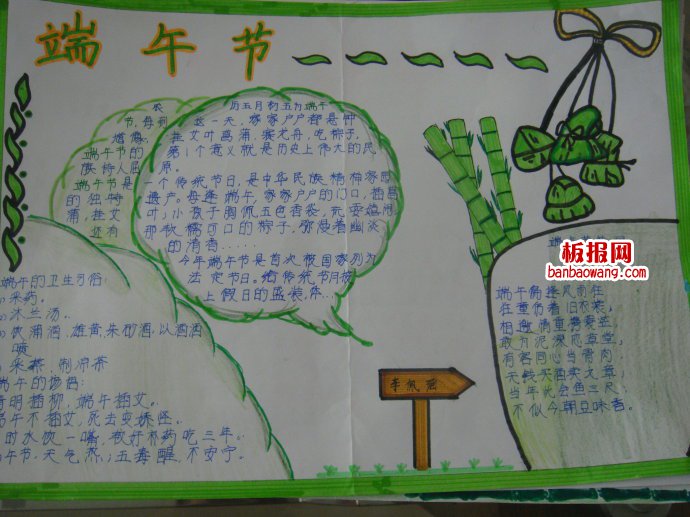 端午节
农历五月初五为端午
节,每到这一天,家家户户都悬钟
馗像,挂艾叶菖蒲,赛龙舟,吃粽子,
端午节的第1个意义就是历史上伟大的民
族诗人屈原。
端午节是一个传统节日,是中华民族精神家园
的独特遗产。每逢端午,家家户户的门口,插菖
蒲,挂艾叶;小孩子胸佩五色香袋,
还有那软糯可口的粽子,弥漫着幽淡
的清香……
今年端午节是首次被国家列为
法定节日。给传统节日披
上假日的盛装,
端午的卫生习俗:
采药。
沐兰汤。
饮蒲酒,雄黄,朱砂酒,以酒洒
喷
采茶,制凉茶
端午的谚语:
清明插柳,端午插艾。
端午不插艾,死去变妖怪。
午时水饮一嘴,较好补药吃三年。
端午节,天气热;五毒醒,不安宁。
李佩瑶
板报网
banbaowang.com
端午偏逢风雨狂
村童仍着旧衣裳
相邀情重携蓑笠
敢为泥深恋草堂
有客同心当骨肉
无钱买酒卖文章
当年此会鱼三尺
不似今朝豆味香。